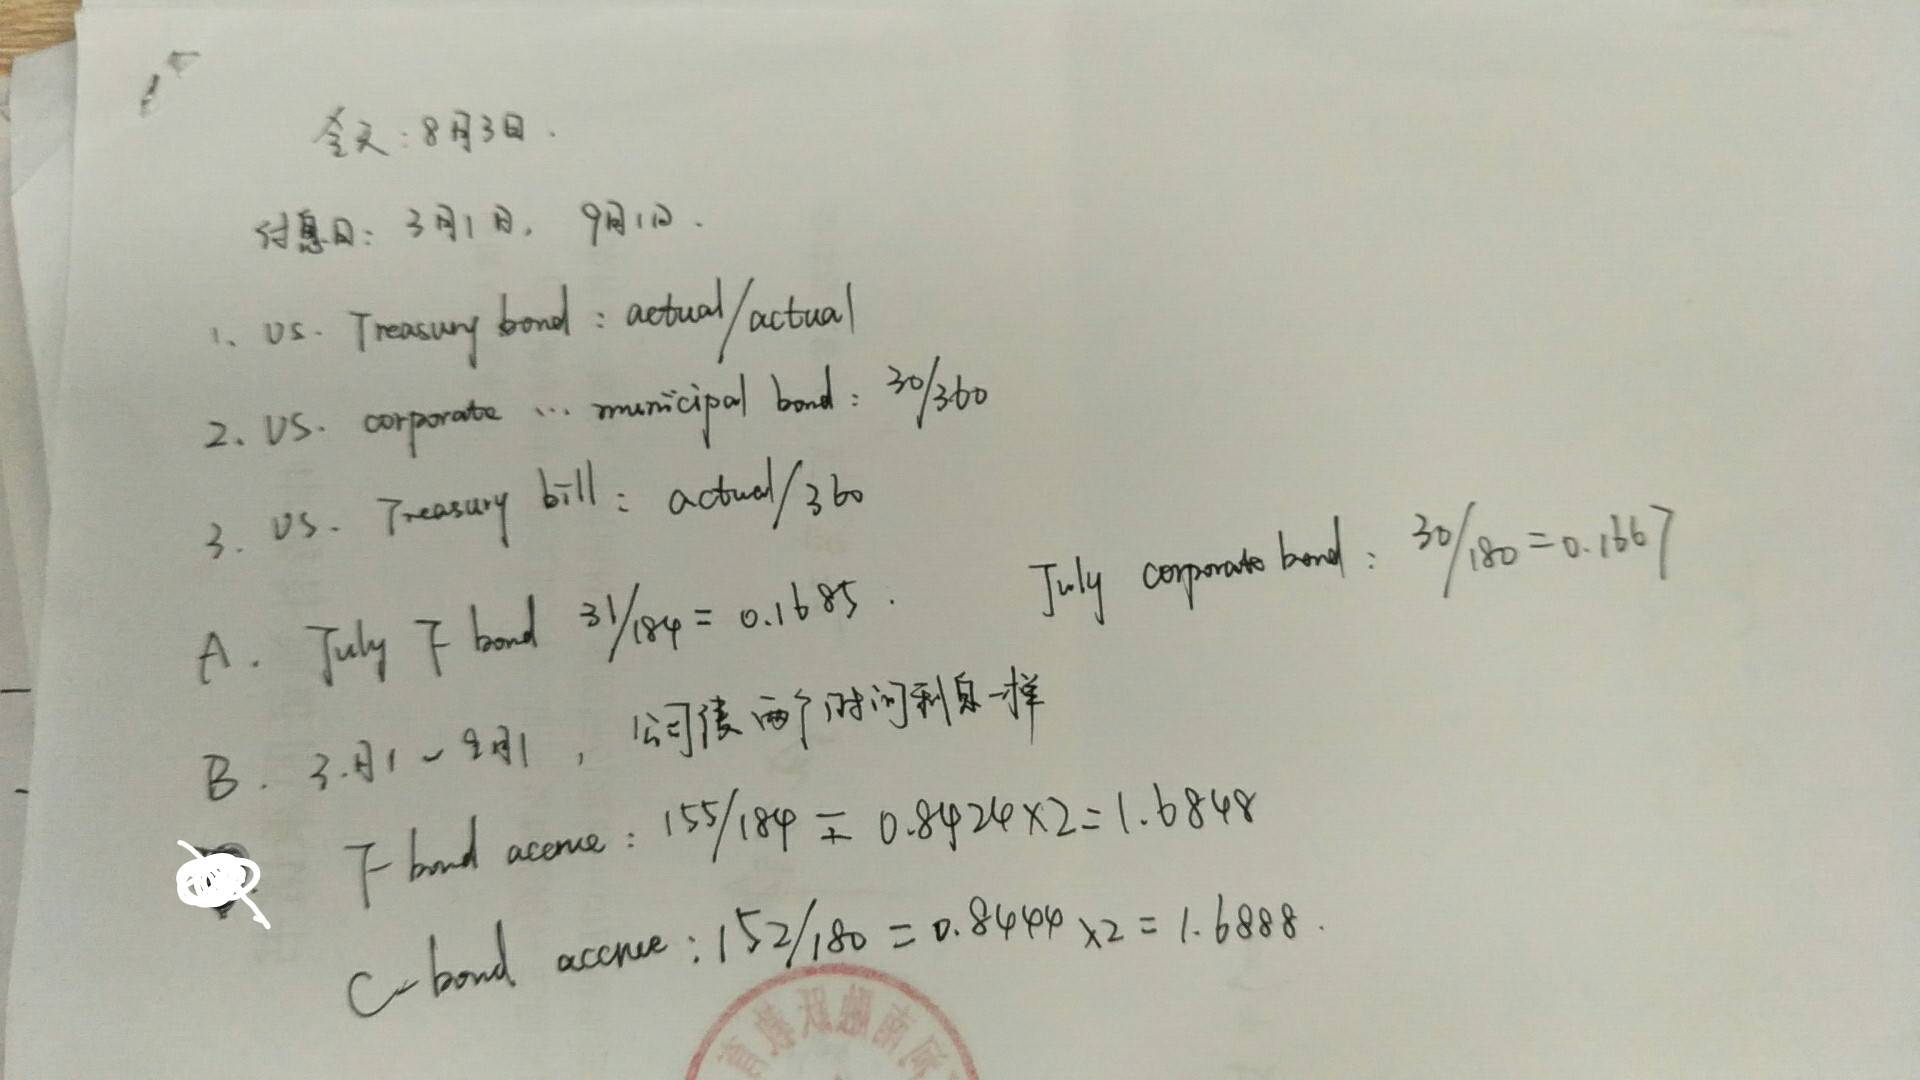 今天:8月3日.
付息日: 3月1日, 9月1日.
1. US. Treasury bond: actual/actual
2. US. corporate ... municipal bond: 30/360
3. US. Treasury bill: actual/360
A. July T bond 31/184 = 0.1685. July corporate bond: 30/180 = 0.1667
B. 3.月1 - 9月1, 公司债两个时间利息一样
T-bond accrue: 155/184 = 0.8424×2=1.6848
C-bond accrue: 152/180 = 0.8444 ×2 = 1.6888.